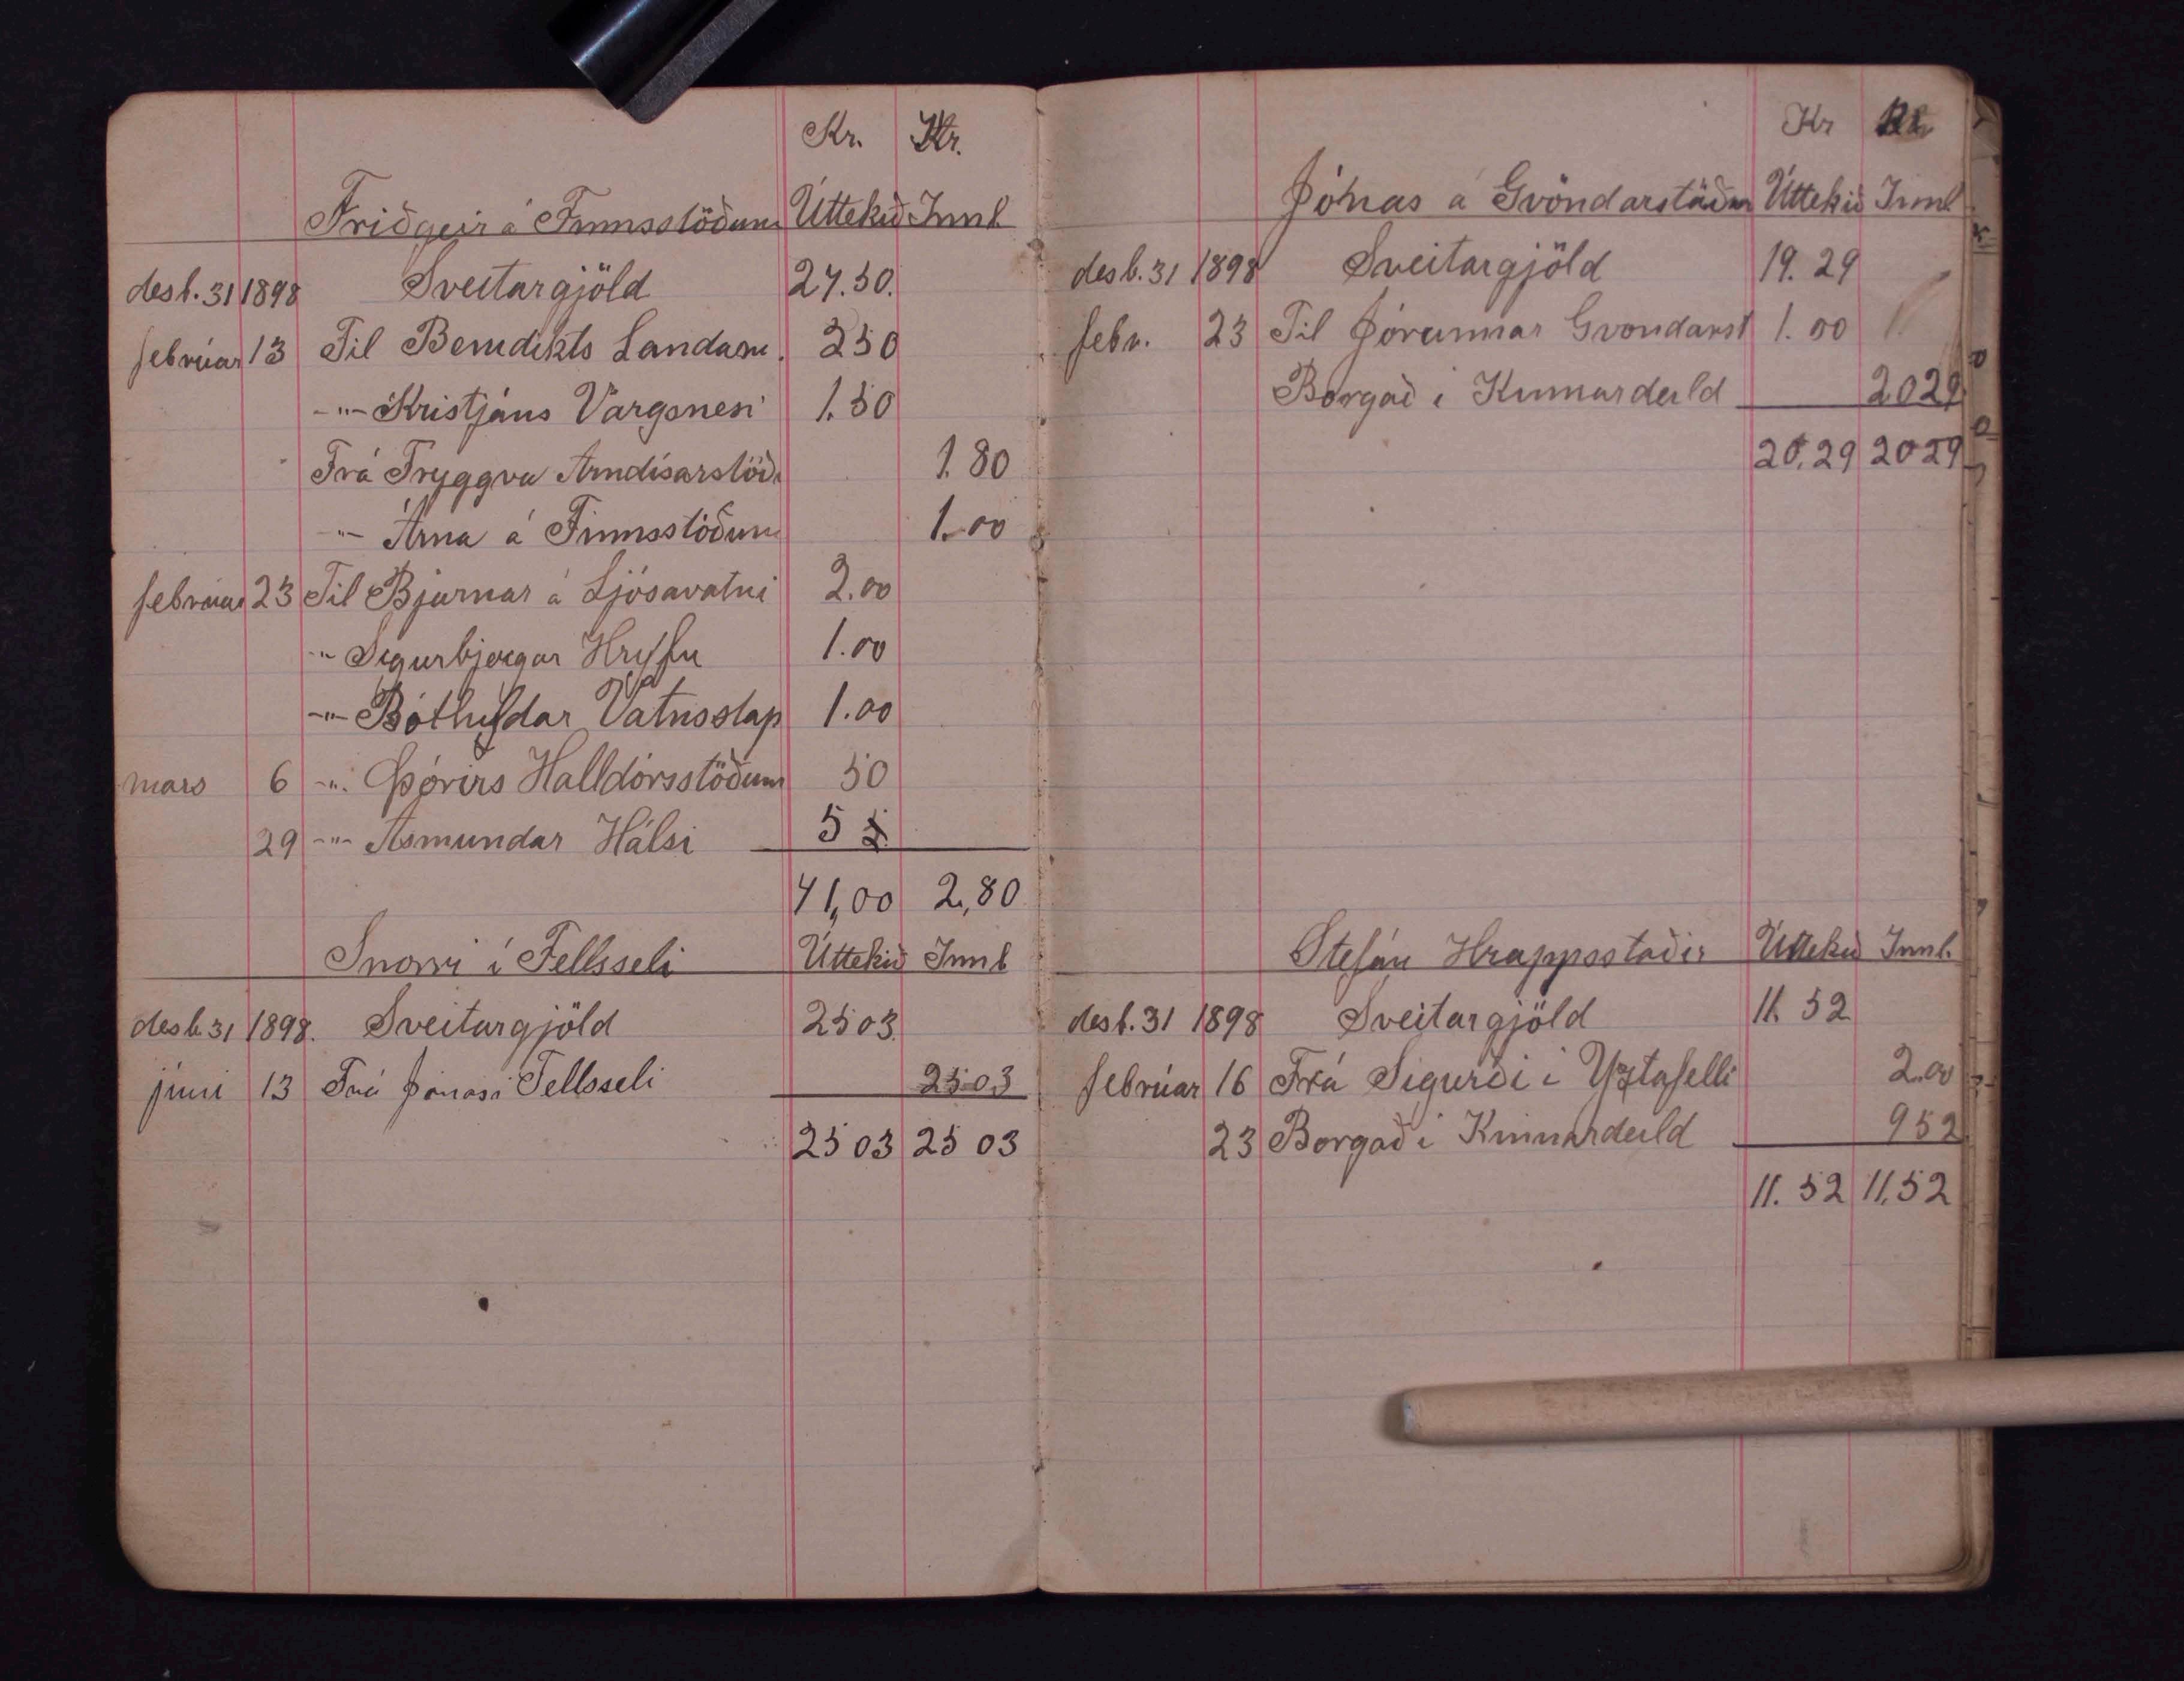 Kr. Kr.
Friðgeir á Finnsstöðum Úttekið Innl
desb. 31 1898 Sveitargjöld 27.50.
febrúar 13 Til Benedikts Landam. 2 50
-"- Kristjáns Vargsnesi 1.50
Frá Tryggva Arndísarstöð. 1.80
-"- Árna á Finnsstöðum 1.00
febrúar 23 Til Bjarnar á Ljósavatni 2.00
-"- Sigurbjorgar Hryflu 1.00
-"- Bóthildar Vatnsslap 1.00
mars 6 -"- Þórirs Halldórsstöðum 50
29 -"- Ásmundar Hálsi 5
41,00 2,80
Snorri í Fellsseli Úttekið Innl
desb. 31 1898. Sveitargjöld 25 03.
júni 13 Frá Jónasi Fellsseli 25 03
25 03 25 03
Kr
Jónas á Gvöndarstöðum Úttekið Innl
desb. 31 1898 Sveitargjöld 19. 29
febr. 23 Til Jórunnar Gvondarst 1. 00
Borgað í Kinnardeild 20 29
20.29 20 29
Stefán Hrappsstaðir Úttekið Innl.
desb. 31 1898 Sveitargjöld 11. 52
febrúar 16 Frá Sigurði í Yztafelli 2.00
23 Borgað í Kinnardeild 9 52
11. 52 11,52